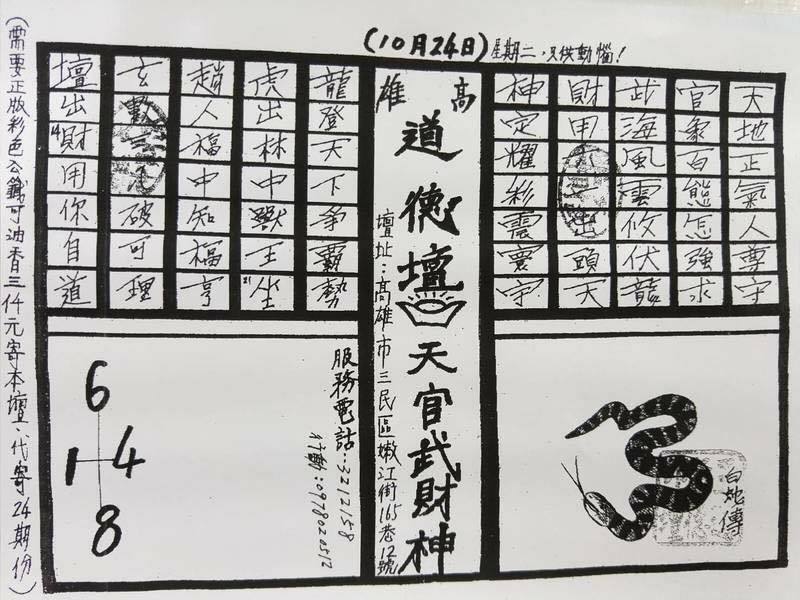 (10月24日)星期二,只供動惱!
天地正氣人尊守
官象百態怎強求
武海風雲攸伏龍
財甲出頭天
神定耀彩震寰宇
高雄
道德壇天官武財神
壇址:高雄市三民區嫩江街165巷12號
龍登天下爭霸勢
虎出林中獸王坐
趙人福中知福亨
玄數破可理
壇出財用你自道
白蛇傳
服務電話:3212158
行動:0978020512
6
1-4
8
(需要正版彩色公籤可油香三仟元寄本壇.代寄24期份)